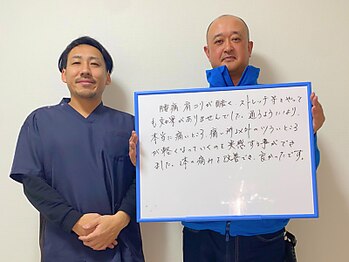 腰痛 肩こりが酷く ストレッチ等をやって
も効果がありませんでした。通うようになり、
本当に痛いところ、痛い所以外のツラいところ
が軽くなっていくのを実感する事ができ
ました。体の痛みも改善でき、良かったです。